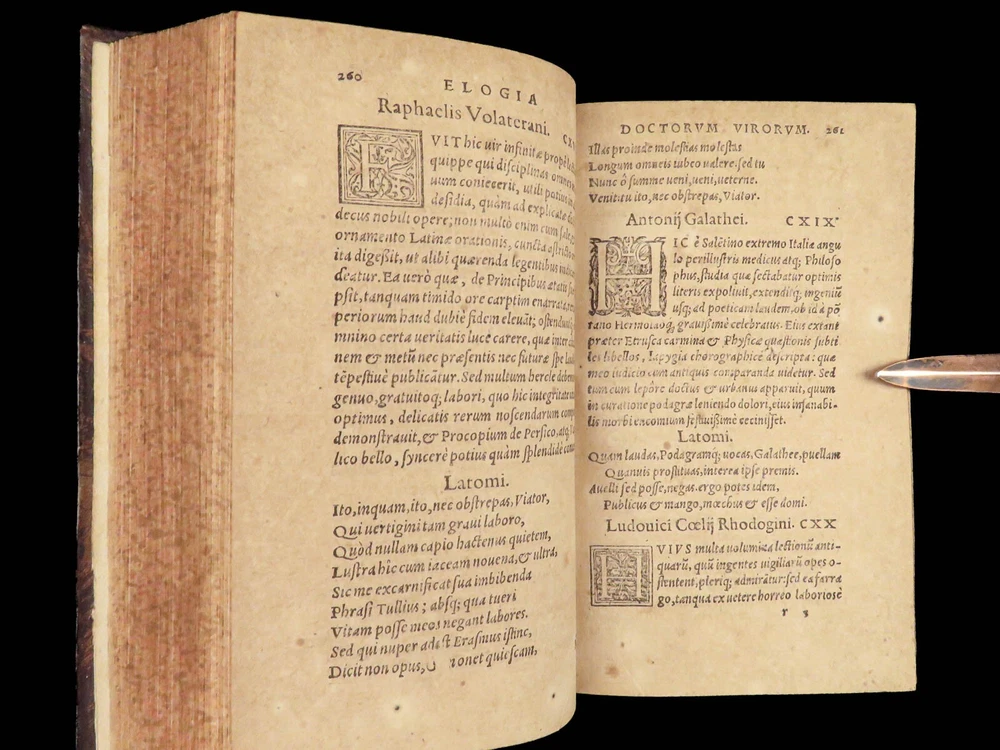 260
ELOGIA
Raphaelis Volaterani.
FVIT hic uir infinitæ
quippe qui disciplinas
uum coniecerit, utili potius
desidia, quam ad explicatæ
decus nobili opere; non multò enim cum sale,
ornamento Latinæ orationis, cuncta
ita digeßit, ut alibi quærenda legentibus
deatur. Ea uerò quæ, de Principibus ætatis
psit, tanquam timido ore carptim enarrata,
periorum haud dubiè fidem eleuãt; ostendunt
mnino certa veritatis luce carere, quæ inter
nem & metũ nec præsentis nec futuræ spe
tẽpestiuè publicãtur. Sed multum hercle
genuo, gratuitoq; labori, quo hic integritate
optimus, delicatis rerum noscendarum
demonstrauit, & Procopium de Persico, atq;
lico bello, syncerè potius quàm splendidè
Latomi.
Ito, inquam, ito, nec obstrepas, Viator,
Qui uertigini tam graui laboro,
Quòd nullam capio hactenus quietem,
Lustra hîc cum iaceam nouena, & ultra,
Sic me excarnificat sua imbibenda
Phrasi Tullius; absq; qua tueri
Vitam posse meos negant labores.
Sed qui nuper adest Erasmus istinc,
Dicit non opus, onet quiescam,
DOCTORVM VIRORVM. 261
Illas proinde molestias molestas
Longum omneis iubeo ualere. sed tu
Nunc ô summe ueni, ueni, ueterne.
Venit: tu ito, nec obstrepas, Viator.
Antonij Galathei. CXIX
HIC è Salẽtino extremo Italiæ angu
lo perillustris medicus atq; Philoso
phus, studia quæ sectabatur optimis
literis expoliuit, extenditq; ingeniũ
usq; ad poeticam laudem, ob id à põ
tano Hermolaoq, grauißimè celebratus. Eius extant
præter Etrusca carmina & Physicæ quæstionis subti
les libellos, Iapygia chorographicè descripta: quæ
meo iudicio cum antiquis comparanda uidetur. Sed
tum cum lepôre doctus & urbanus apparuit, quum
in curatione podagræ leniendo dolori, eius insanabi-
lis morbi encomium festiuißimè cecinisset.
Latomi.
Quam laudas, Podagramq; uocas, Galathee, puellam
Quamuis prostituas, interea ipse premis.
Auelli sed posse, negas. ergo potes idem,
Publicus & mango, mœchus & esse domi.
Ludouici Cœlij Rhodogini. CXX
HVIVS multa uolumina lectionũ anti-
quarũ, quũ ingentes uigiliarũ opes o-
stentent, pleriq; admirãtur: sed ea farra
go, tanqua ex uetere horreo laboriosè
r 3